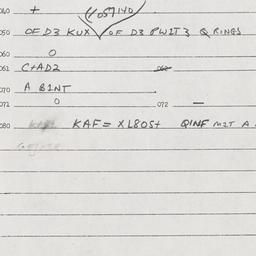 040 + (1057140)
050 OF D3 KUX / OF D3 PW2T3 Q RINGS
060 O
061 C+AD2 062
070 A B1NT
071 O 072 —
080 KAF = XL805+ QINF M2T A